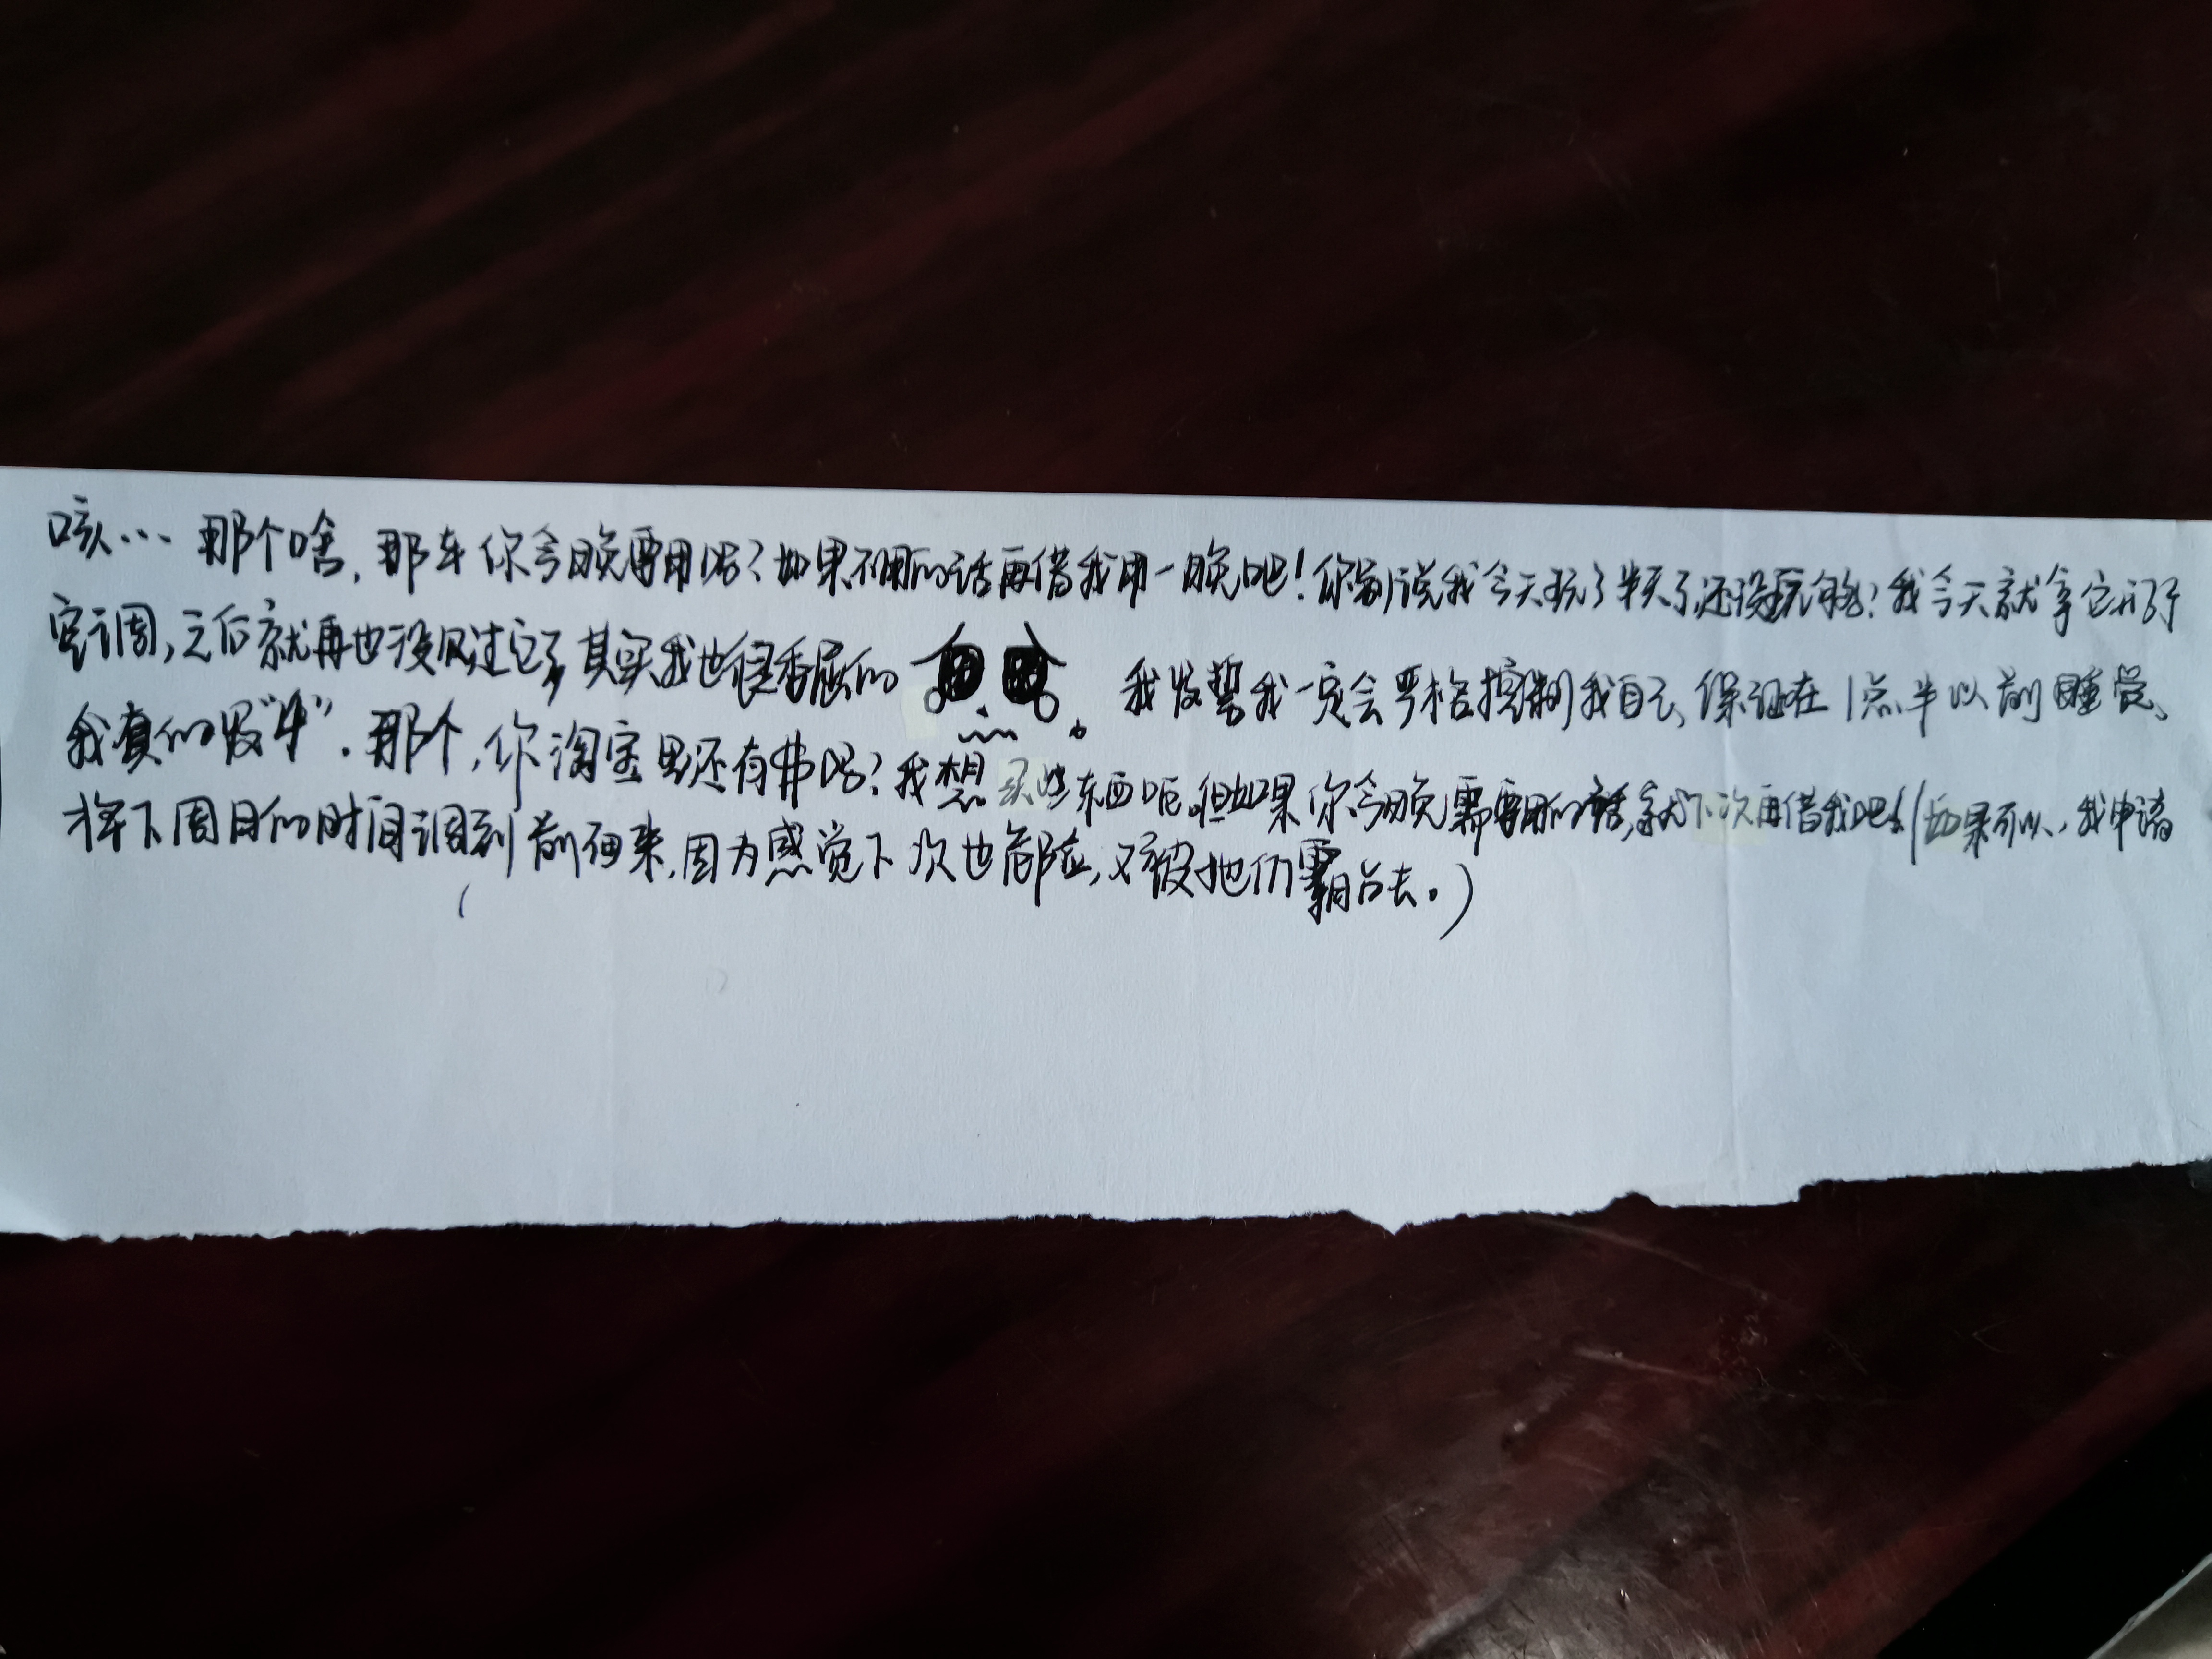 咳… 那个啥，那车你今晚要用吗？如果不用的话再借我用一晚吧！你别说我今天玩了半天了还没玩够？我今天就拿它开了
空调，之后就再也没见过它了，其实我也很委屈的 我发誓我一定会严格控制我自己，保证在1点半以前睡觉、
我真的没"牛"．那个，你淘宝里还有弗吗？我想买些东西呃。但如果你今晚需要用的话，就下次再借我吧！（如果可以，我申请
将下周日的时间调到前面来，因为感觉下次也危险，又被他们霸占去。）